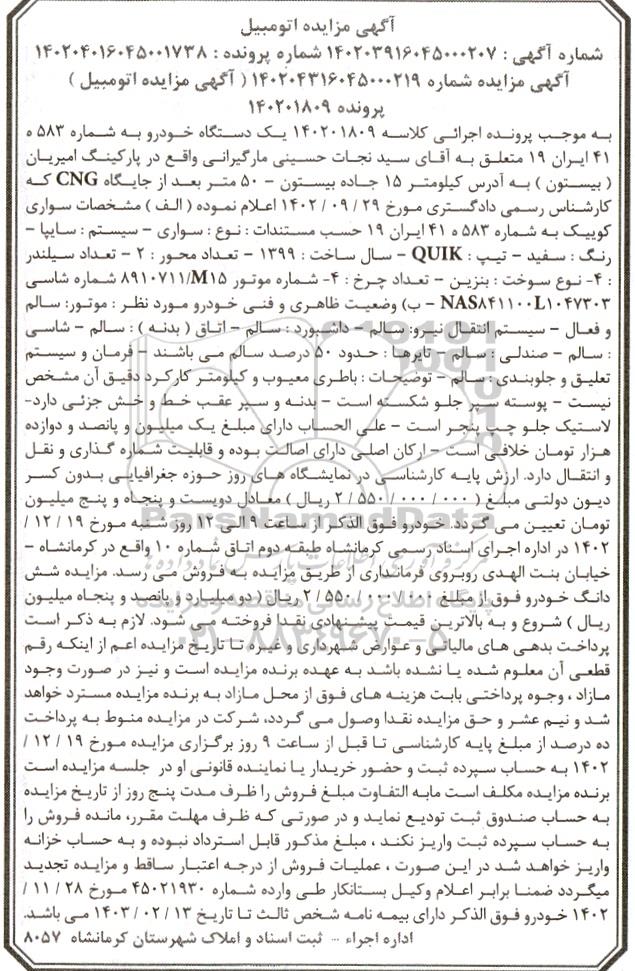 آگهی مزایده اتومبیل
شماره آگهی : ۱۴۰۲۰۳۹۱۶۰۴۵۰۰۰۲۰۷ شماره پرونده : ۱۴۰۲۰۴۰۱۶۰۴۵۰۰۱۷۳۸
آگهی مزایده شماره ۱۴۰۲۰۴۳۱۶۰۴۵۰۰۰۲۱۹ ( آگهی مزایده اتومبیل )
پرونده ۱۴۰۲۰۱۸۰۹
به موجب پرونده اجرائی کلاسه ۱۴۰۲۰۱۸۰۹ یک دستگاه خودرو به شماره ۵۸۳ ه
۴۱ ایران ۱۹ متعلق به آقای سید نجات حسینی مارگیرانی واقع در پارکینگ امیریان
( بیستون ) به آدرس کیلومتر ۱۵ جاده بیستون - ۵۰ متر بعد از جایگاه CNG که
کارشناس رسمی دادگستری مورخ ۲۹ / ۰۹ / ۱۴۰۲ اعلام نموده ( الف ) مشخصات سواری
کوییک به شماره ۵۸۳ ه ۴۱ ایران ۱۹ حسب مستندات : نوع : سواری - سیستم : سایپا -
رنگ : سفید - تیپ : QUIK - سال ساخت : ۱۳۹۹ - تعداد محور : ۲ - تعداد سیلندر
: ۴- نوع سوخت : بنزین - تعداد چرخ : ۴- شماره موتور ۸۹۱۰۷۱۱/M۱۵ شماره شاسی
NAS۸۴۱۱۰۰L۱۰۴۷۳۰۳ - ب) وضعیت ظاهری و فنی خودرو مورد نظر : موتور: سالم
و فعال - سیستم انتقال نیرو: سالم - داشبورد : سالم - اتاق ( بدنه ) : سالم - شاسی
: سالم - صندلی : سالم - تایرها : حدود ۵۰ درصد سالم می باشند - فرمان و سیستم
تعلیق و جلوبندی : سالم - توضیحات : باطری معیوب و کیلومتر کارکرد دقیق آن مشخص
نیست - پوسته سپر جلو شکسته است - بدنه و سپر عقب خط و خش جزئی دارد-
لاستیک جلو چپ پنچر است - علی الحساب دارای مبلغ یک میلیون و پانصد و دوازده
هزار تومان خلافی است - ارکان اصلی دارای اصالت بوده و قابلیت شماره گذاری و نقل
و انتقال دارد. ارزش پایه کارشناسی در نمایشگاه های روز حوزه جغرافیایی بدون کسر
دیون دولتی مبلغ ( ۰۰۰/ ۰۰۰/ ۵۵۰/ ۲ ریال ) معادل دویست و پنجاه و پنج میلیون
تومان تعیین می گردد. خودرو فوق الذکر از ساعت ۹ الی ۱۲ روز شنبه مورخ ۱۹ / ۱۲ /
۱۴۰۲ در اداره اجرای اسناد رسمی کرمانشاه طبقه دوم اتاق شماره ۱۰ واقع در کرمانشاه -
خیابان بنت الهدی روبروی فرمانداری از طریق مزایده به فروش می رسد. مزایده شش
دانگ خودرو فوق از مبلغ ۰۰۰/ ۰۰۰/ ۵۵۰/ ۲ ریال ( دو میلیارد و پانصد و پنجاه میلیون
ریال ) شروع و به بالاترین قیمت پیشنهادی نقدا فروخته می شود. لازم به ذکر است
پرداخت بدهی های مالیاتی و عوارض شهرداری و غیره تا تاریخ مزایده اعم از اینکه رقم
قطعی آن معلوم شده یا نشده باشد به عهده برنده مزایده است و نیز در صورت وجود
مازاد ، وجوه پرداختی بابت هزینه های فوق از محل مازاد به برنده مزایده مسترد خواهد
شد و نیم عشر و حق مزایده نقدا وصول می گردد، شرکت در مزایده منوط به پرداخت
ده درصد از مبلغ پایه کارشناسی تا قبل از ساعت ۹ روز برگزاری مزایده مورخ ۱۹ / ۱۲ /
۱۴۰۲ به حساب سپرده ثبت و حضور خریدار یا نماینده قانونی او در جلسه مزایده است
برنده مزایده مکلف است مابه التفاوت مبلغ فروش را ظرف مدت پنج روز از تاریخ مزایده
به حساب صندوق ثبت تودیع نماید و در صورتی که ظرف مهلت مقرر، مانده فروش را
به حساب سپرده ثبت واریز نکند ، مبلغ مذکور قابل استرداد نبوده و به حساب خزانه
واریز خواهد شد در این صورت ، عملیات فروش از درجه اعتبار ساقط و مزایده تجدید
میگردد ضمنا برابر اعلام وکیل بستانکار طی وارده شماره ۴۵۰۲۱۹۳۰ مورخ ۲۸ / ۱۱ /
۱۴۰۲ خودرو فوق الذکر دارای بیمه نامه شخص ثالث تا تاریخ ۱۳ / ۰۲ / ۱۴۰۳ می باشد.
اداره اجراء - ثبت اسناد و املاک شهرستان کرمانشاه ۸۰۵۷
ParsNamadData
۰۲۱-۸۸۳۴۹۶۷۰-۵